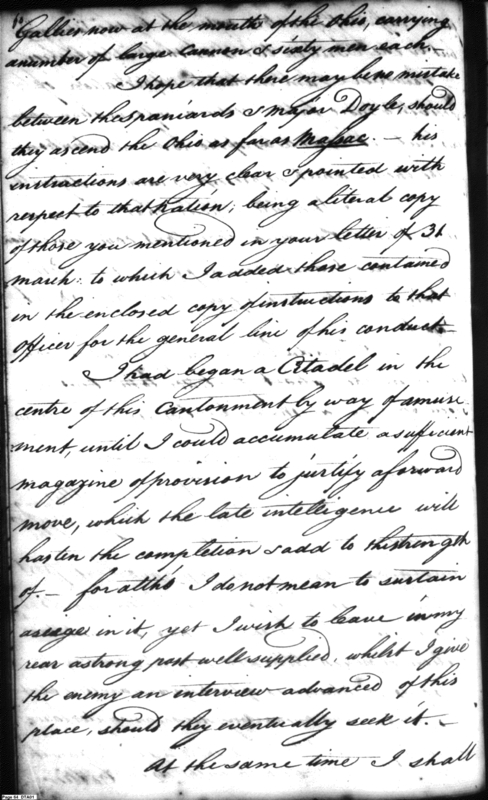 Gallies now at the mouth of the Ohio, carrying
a number of large Cannon & sixty men each. —
I hope that there may be no mistake
between the Spaniards & Major Doyle, should
they ascend the Ohio as far as Massac — his
instructions are very clear & pointed with
respect to that Nation; being a literal copy
of those you mentioned in your letter of 31
march: to which I added those contained
in the enclosed copy of instructions to that
officer for the general line of his conduct —
I had began a Citadel in the
centre of this Cantonment by way of amuse-
ment, until I could accumulate a sufficient
magazine of provision to justify a forward
move, which the late intelligence will
hasten the completion & add to the strength
of — for altho' I do not mean to sustain
a siege in it, yet I wish to leave in my
rear a strong post well supplied, whilst I give
the enemy an interview advanced of this
place, should they eventually seek it. —
At the same time I shall